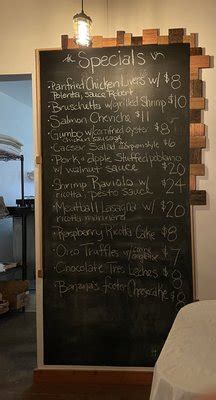 the Specials
Panfried Chicken Livers w/ $8
Polenta, Sauce Robert
Bruschetta w/ grilled Shrimp $10
Salmon Cheviche $11
Gumbo w/ oyster $8
chicken sausage
Caesar Salad $6
Pork + apple Stuffed poblano
w/ walnut sauce $20
Shrimp Raviolo w/ $24
ricotta, Pesto Sauce
Meatball Lasagna w/ $20
ricotta marinara
Raspberry Ricotta Cake $8
Oreo Truffles w/ creme anglaise $7
Chocolate Tres Leches $8
Cheesecake $8